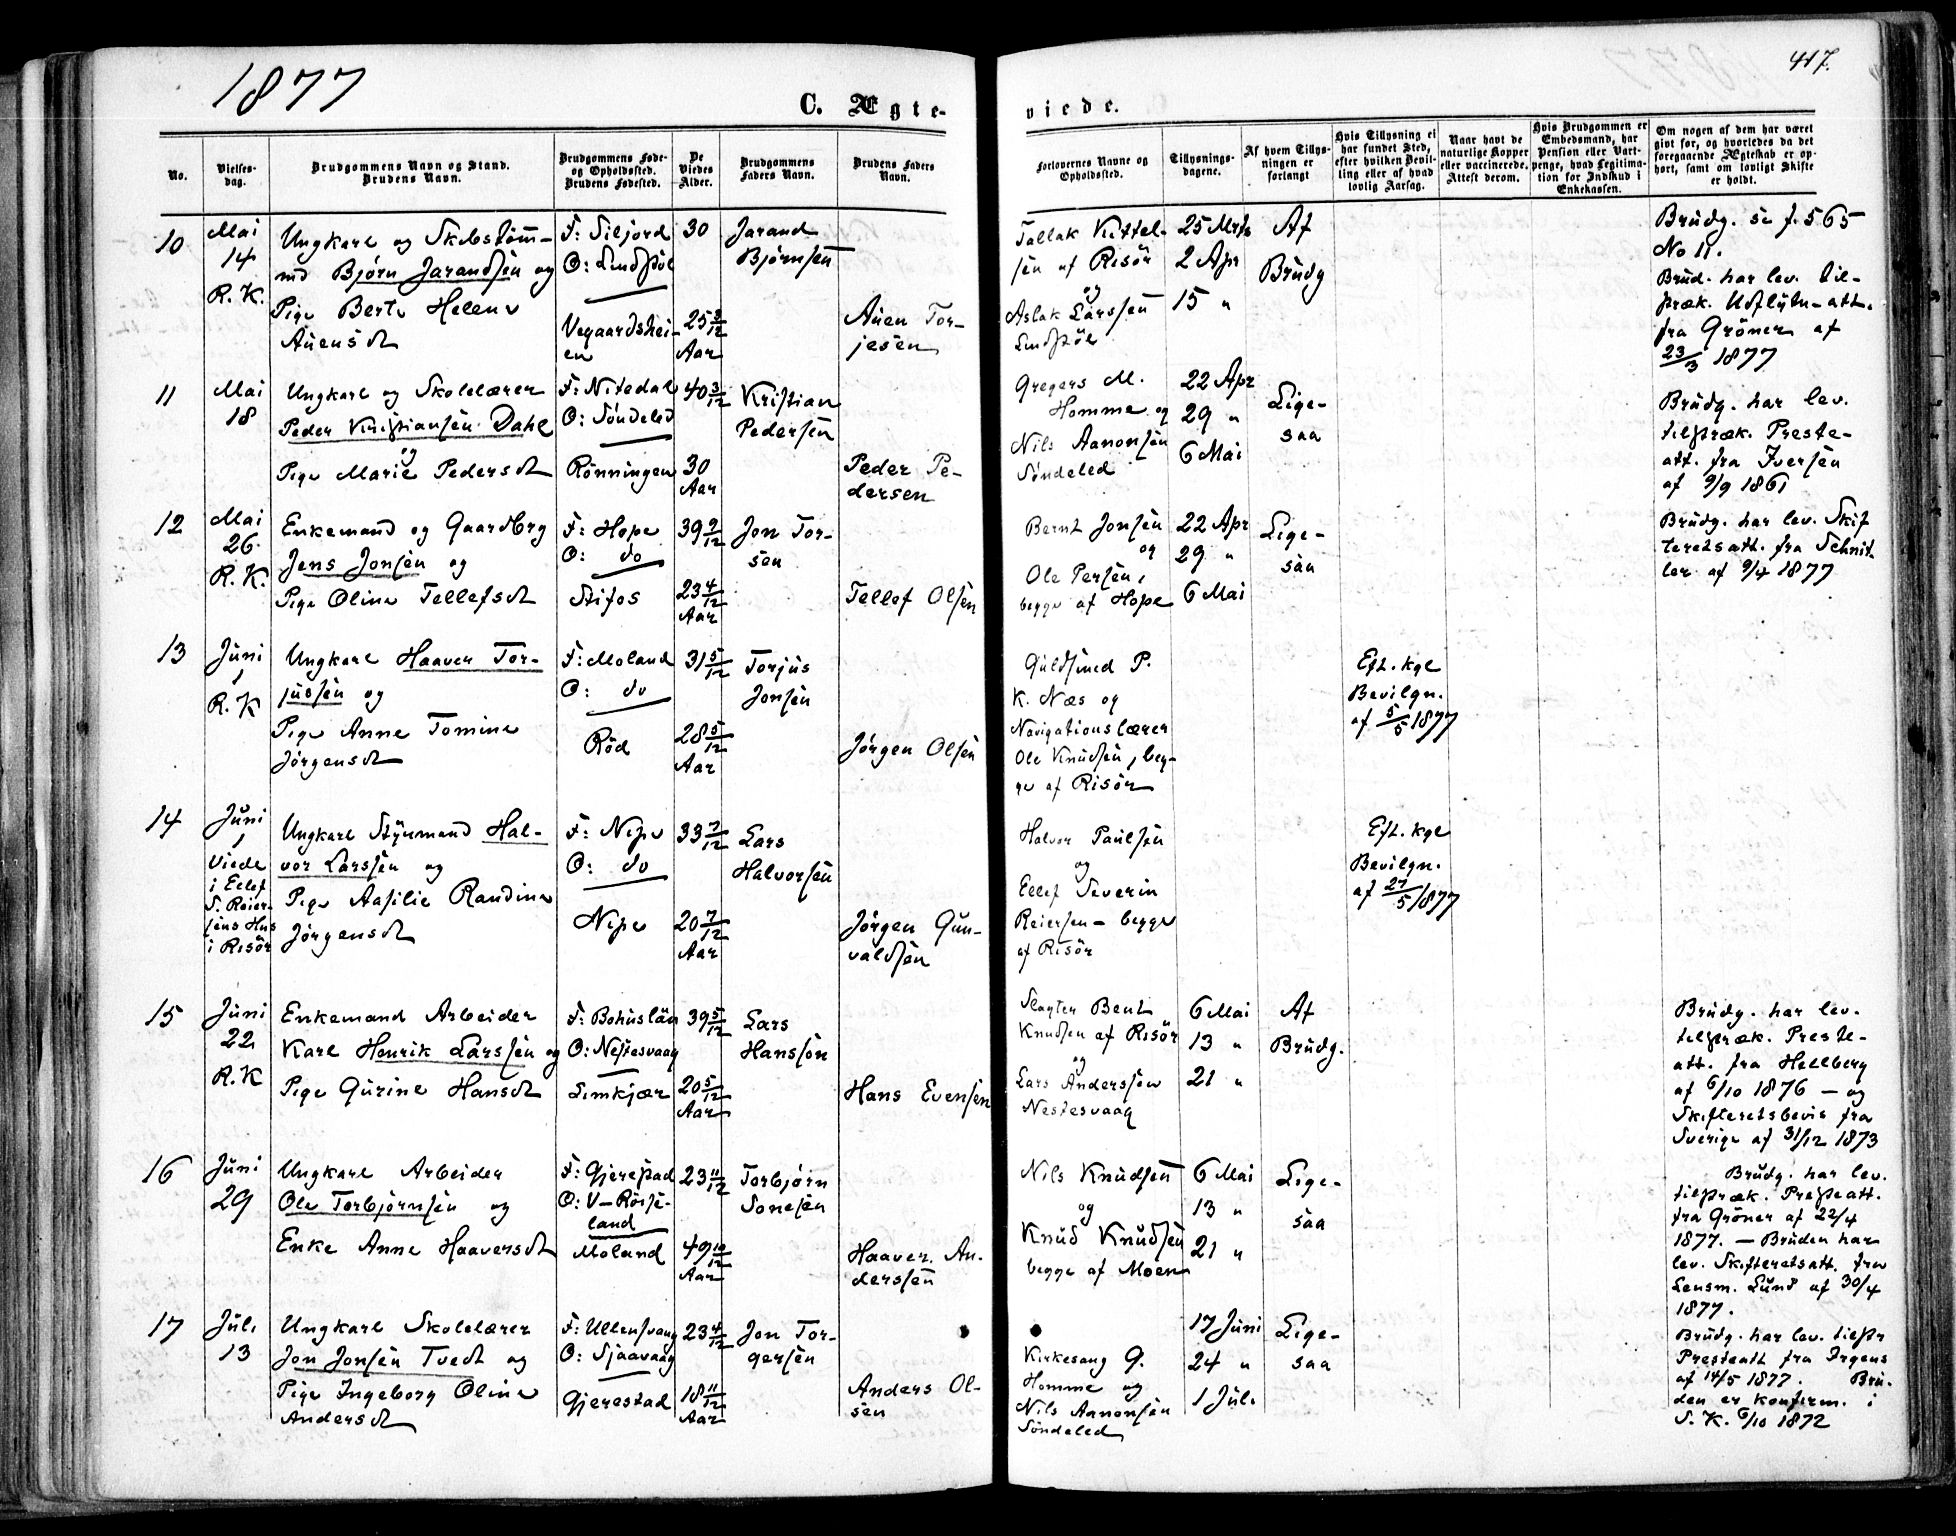 1877
417.
C. Ægte-
viede.
No.
Vielses-
dag.
Brudgommens Navn og Stand.
Brudens Navn.
Brudgommens Føde-
og Opholdssted.
Brudens Fødested.
De
Viedes
Alder.
Brudgommens
Faders Navn.
Brudens Faders
Navn.
Forlovernes Navne og
Opholdssted.
Tillysnings-
dagene.
Af hvem Tillys-
ningen er
forlangt
Hvis Tillysning ei
har fundet Sted,
efter hvilken Bevil-
ling eller af hvad
lovlig Aarsag.
Naar havt de
naturlige Kopper
eller vaccinerede.
Attest derom.
Hvis Brudgommen er
Embedsmand, har
Pension eller Vart-
penge, hvad Legitima-
tion for Indskud i
Enkekassen.
Om nogen af dem har været
gift før, og hvorledes da det
foregaaende Ægteskab er op-
hørt, samt om lovligt Skifte
er holdt.
10
Mai
14
R. K.
Ungkarl og
Bjørn Jarandsen og
Pige Berte Helene
Auensdt
F: Siljord
O: Lindstøl
Vegaardshei-
en
30
25 3/12
Aar
Jarand
Bjørnsen
Auen Tor-
jesen
Tallak Kittel-
sen af Risör
og
Aslak Larssen
Lindstøl
25 Mrts
2 Apr
15 "
Af
Brudg
Brudg. se f. 565
No 11.
Brud. har lev. til-
stræk. Udflytn-att.
fra Gröner af
23/3 1877
11
Mai
18
Ungkarl og Skolelærer
Peder Kristiansen Dahl
og
Pige Marie Pedersdt
F: Nitedal
O: Söndeled
Rönningen
40 3/12
30
Aar
Kristian
Pedersen
Peder Pe-
dersen
Gregers M.
Homme og
Nils Aanonsen
Söndeled
22 Apr
29 "
6 Mai
Lige-
saa
Brudg. har lev.
tilstræk. Preste-
att. fra Iversen
af 9/9 1861
12
Mai
26
R. K.
Enkemand og Gaardbrg
Jens Jonsen og
Pige Oline Tellefsdt
F: Hope
O: do
Stifos
39 9/12
23 4/12
Aar
Jon Tor-
sen
Tellef Olsen
Bernt Jonsen
og
Ole Persen,
begge af Hope
22 Apr
29 "
6 Mai
Lige-
saa
Brudg. har lev. Skif
teretsatt. fra Schnit
ler af 9/4 1877
13
Juni
1
R. K
Ungkarl Haaver Tor-
jussen og
Pige Anne Tomine
Jörgensdt
F: Moland
O: do
Röd
31 5/12
28 5/12
Aar
Torjus
Jonsen
Jörgen Olsen
Guldsmed P.
K. Næs og
Navigationslærer
Ole Knudsen, beg-
ge af Risör
Eft. kgl
Bevilgn.
af 5/5 1877
14
Juni
1
Viede
i Ellef
S. Reier-
sens Hus
i Risör
Ungkarl Styrmand Hal-
vor Larssen og
Pige Aasilie Randine
Jörgensdt
F: Nipe
O: do
Nipe
33 7/12
20 7/12
Aar
Lars
Halvorsen
Jörgen Gun-
valdsen
Halvor Paulsen
og
Ellef Severin
Reiersen - begge
af Risör
Eft. kgl
Bevilgn.
af 27/5 1877
15
Juni
22
R. K
Enkemand Arbeider
Karl Henrik Larssen og
Pige Gurine Hansdt
F: Bohuslän
O: Nestesvaag
Limkjær
39 5/12
20 5/12
Aar
Lars
Hansson
Hans Evensen
Slagter Bent
Knudsen af Risör
og
Lars Anderssen
Nestesvaag
6 Mai
13 "
21 "
Af
Brudg.
Brudg. har lev.
tilstræk. Preste-
att. fra Hellberg
af 6/10 1876 - og
Skifteretsbevis fra
Sverige af 31/12 1873
16
Juni
29
Ungkarl Arbeider
Ole Torbjörnsen og
Enke Anne Haaversdt
F: Gjerestad
O: V-Röise-
land
Moland
23 11/12
49 10/12
Aar
Torbjørn
Sonesen
Haaver An-
derssen
Nils Knudsen
og
Knud Knudsen
begge af Moen
6 Mai
13 "
21 "
Lige-
saa
Brudg. har lev.
tilstræk. Presteatt.
fra Gröner af 22/4
1877. - Bruden har
lev. Skifteretsatt. fra
Lensm. Lund af 30/4
1877.
17
Juli
13
Ungkarl Skolelærer
Jon Jonsen Tvedt og
Pige Ingeborg Oline
Andersdt
F: Ullensvang
O: Sjaavaag
Gjerestad
23 4/12
18 11/12
Aar
Jon Tor-
gersen
Anders Ol-
sen
Kirkesang G.
Homme og
Nils Aanonsen
Söndeled
17 Juni
24 "
1 Juli
Lige-
saa
Brudg. har lev. tilstr
Presteatt fra Irgens
af 14/5 1877. Bru-
den er konfirm. i
S. K. 6/10 1872